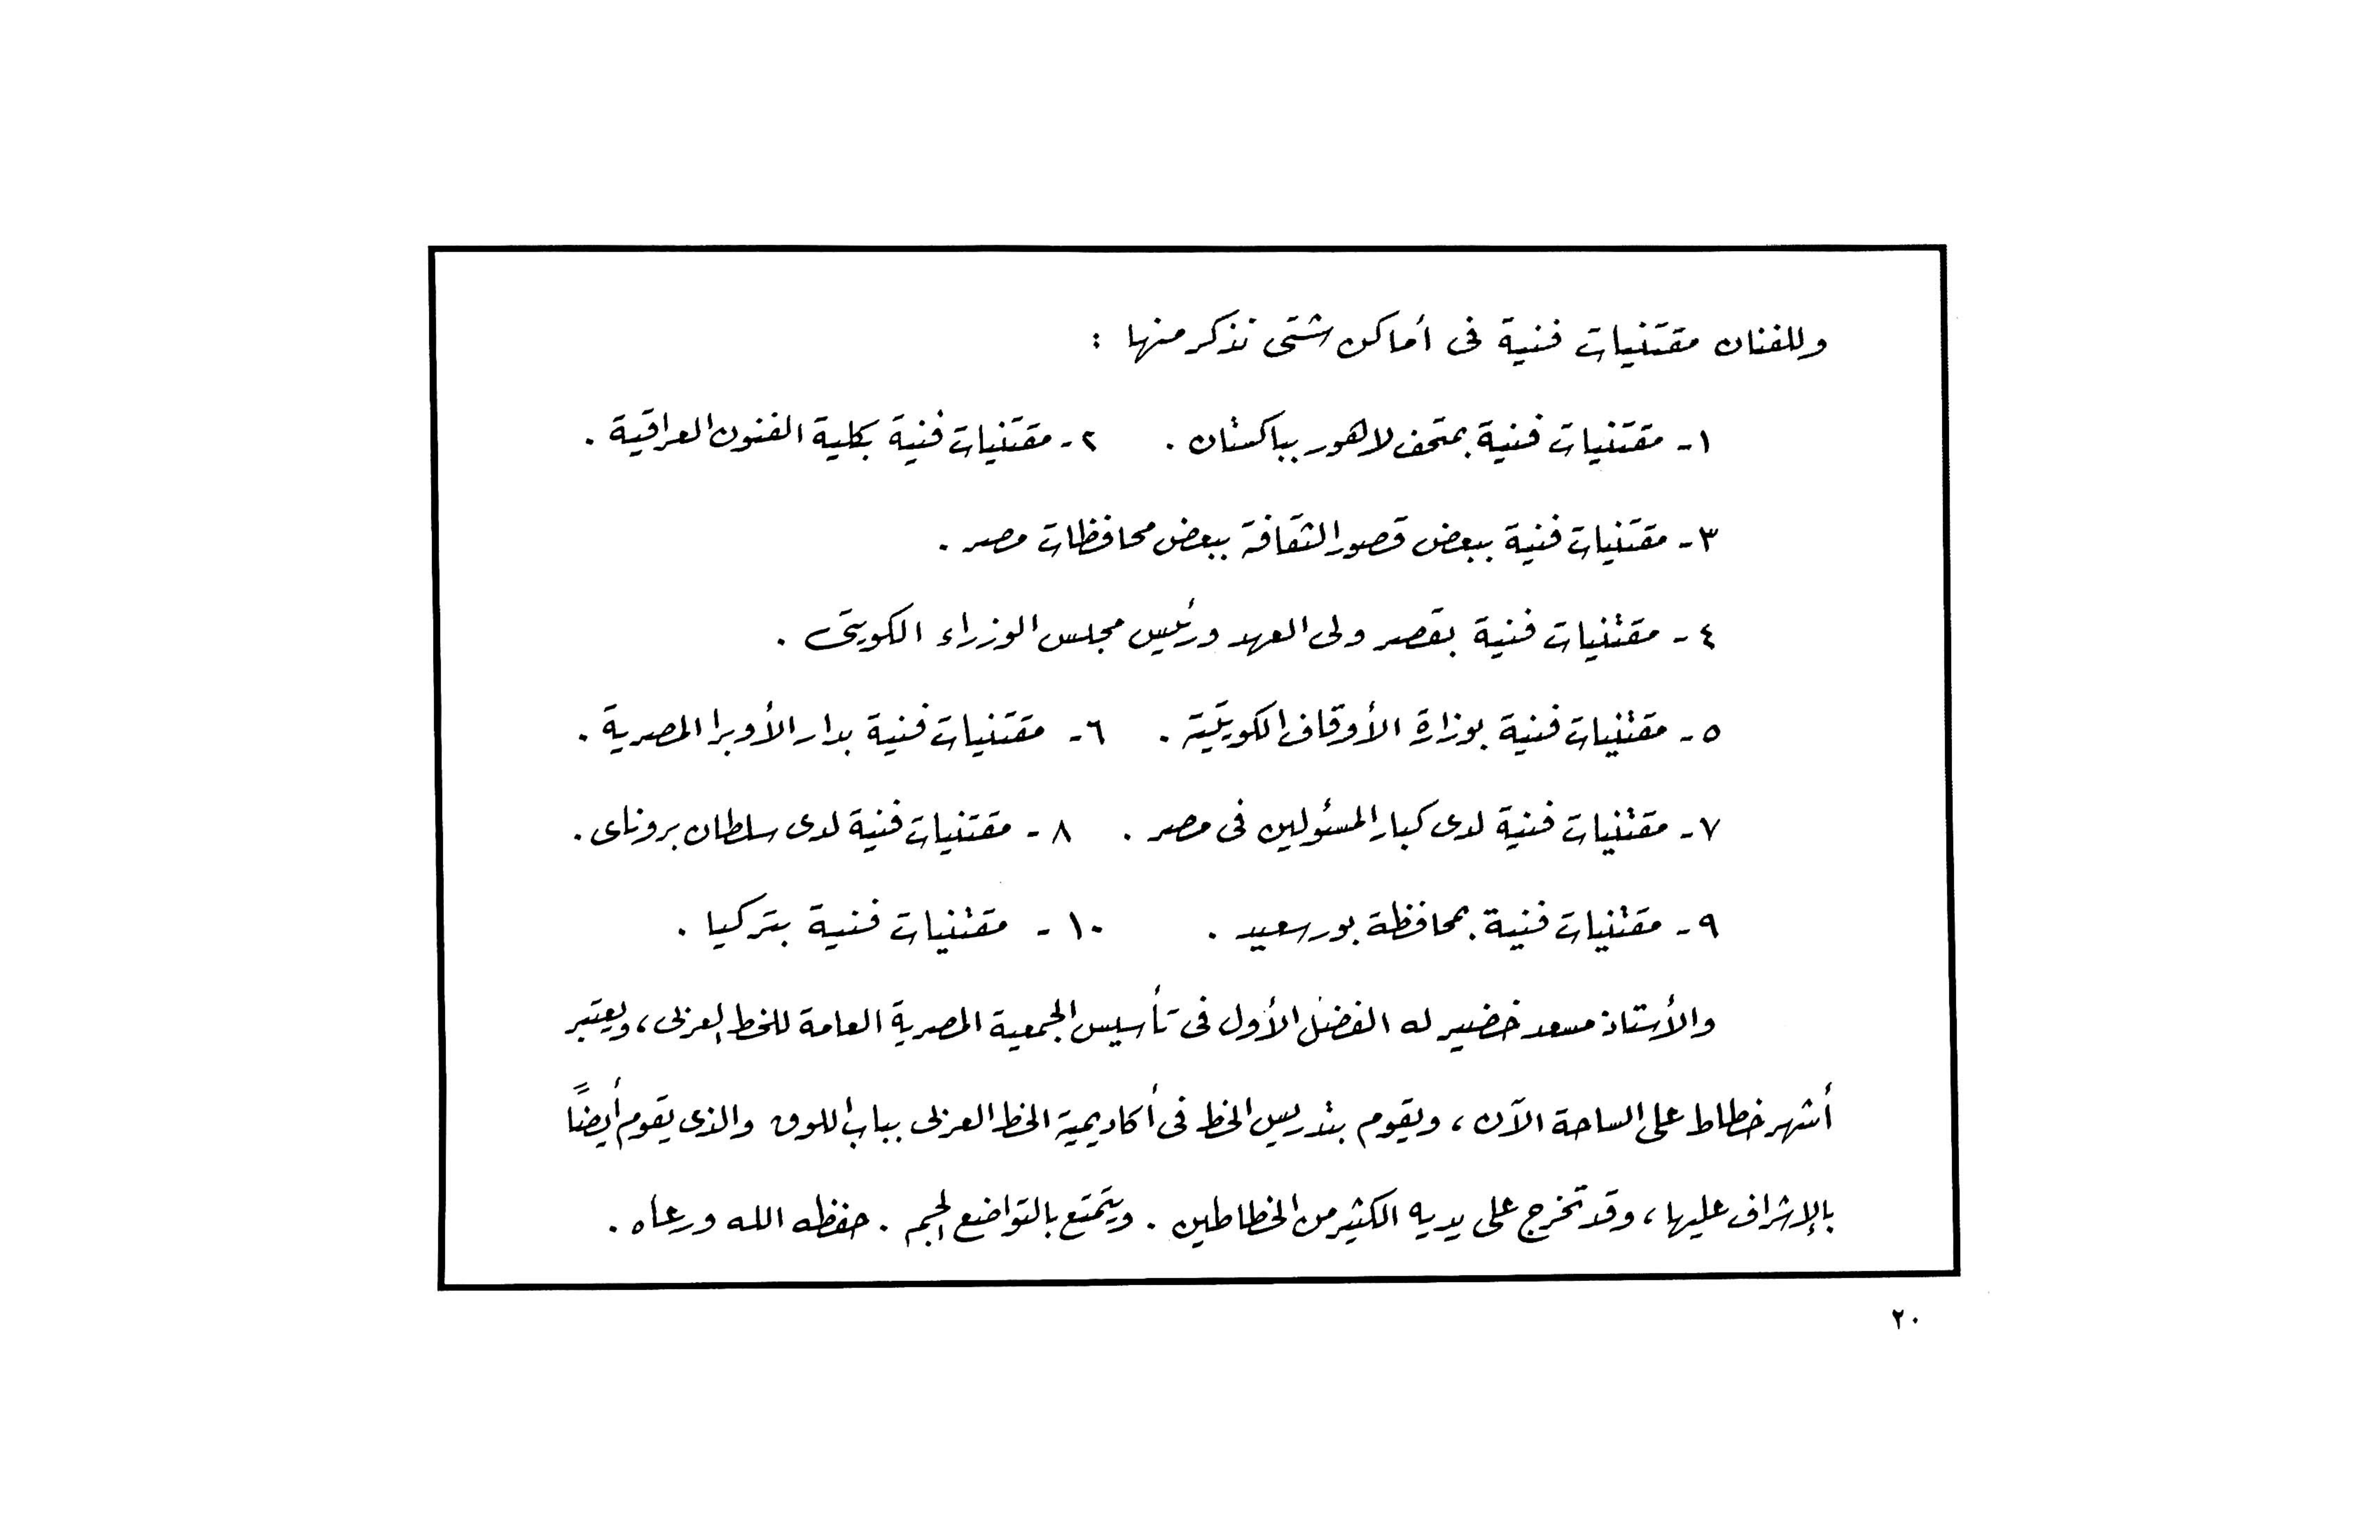 وللفنان مقتنيات فنية فى أماكن شتى نذكر منها :
١- مقتنيات فنية بمتحف لاهور بباكستان . ٢- مقتنيات فنية بكلية الفنون العراقية .
٣- مقتنيات فنية ببعض قصور الثقافة ببعض محافظات مصر .
٤- مقتنيات فنية بقصر ولى العهد ورئيس مجلس الوزراء الكويتى .
٥- مقتنيات فنية بوزارة الأوقاف الكويتية . ٦- مقتنيات فنية بدار الأوبرا المصرية .
٧- مقتنيات فنية لدى كبار المسئولين فى مصر . ٨- مقتنيات فنية لدى سلطان بروناى .
٩- مقتنيات فنية بمحافظة بورسعيد . ١٠- مقتنيات فنية بتركيا .
والأستاذ مسعد خضير له الفضل الأول فى تأسيس الجمعية المصرية العامة للخط العربى ، ويعتبر
أشهر خطاط على الساحة الآن ، ويقوم بتدريس الخط فى أكاديمية الخط العربى بباب اللوق والذى يقوم أيضًا
بالإشراف عليها ، وقد تخرج على يديه الكثير من الخطاطين . ويتمتع بالتواضع الجم . حفظه الله ورعاه .
٢٠